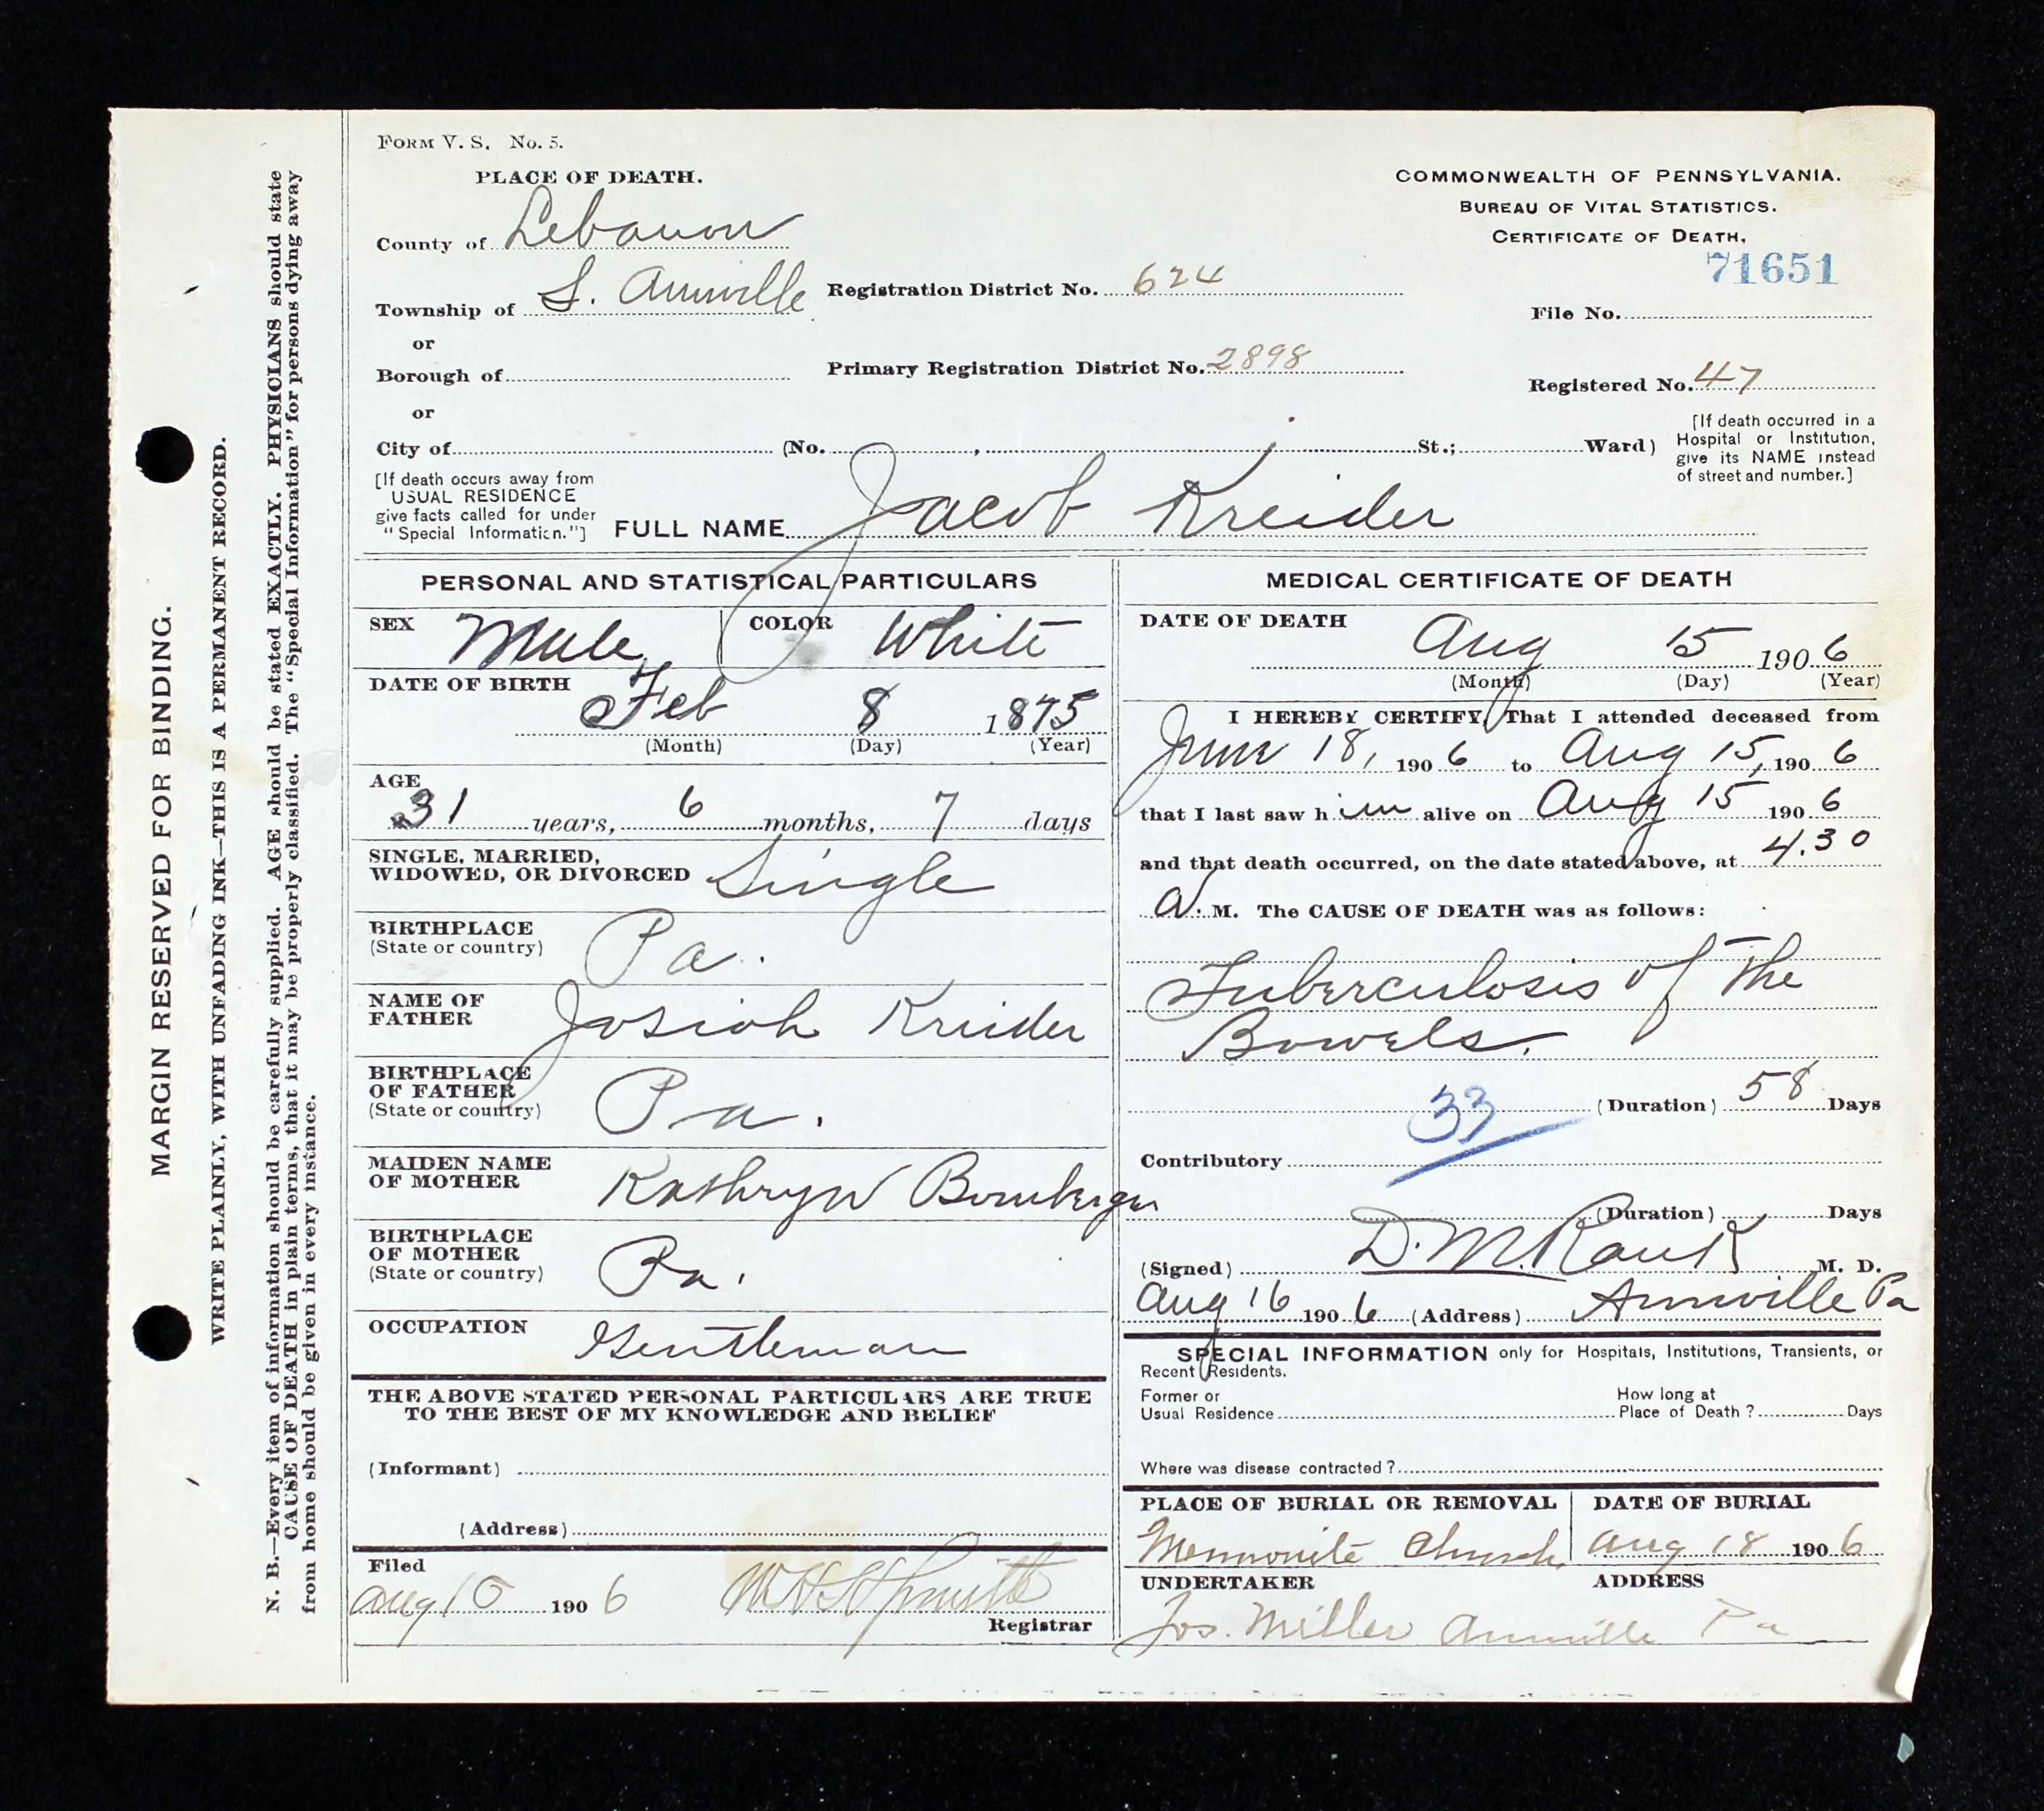 FORM V. S. No. 5.
PLACE OF DEATH.
County of Lebanon
Township of S. Annville
or
Borough of
or
City of (No. , St.; Ward)
Registration District No. 624
Primary Registration District No. 2898
COMMONWEALTH OF PENNSYLVANIA.
BUREAU OF VITAL STATISTICS.
CERTIFICATE OF DEATH.
71651
File No.
Registered No. 47
[If death occurred in a
Hospital or Institution,
give its NAME instead
of street and number.]
[If death occurs away from
USUAL RESIDENCE
give facts called for under
"Special Information."]
FULL NAME Jacob Kreider
PERSONAL AND STATISTICAL PARTICULARS
SEX Male COLOR White
DATE OF BIRTH
Feb 8 1875
(Month) (Day) (Year)
AGE
31 years, 6 months, 7 days
SINGLE, MARRIED,
WIDOWED, OR DIVORCED Single
BIRTHPLACE
(State or country) Pa.
NAME OF
FATHER Josiah Kreider
BIRTHPLACE
OF FATHER
(State or country) Pa.
MAIDEN NAME
OF MOTHER Kathryn Bomberger
BIRTHPLACE
OF MOTHER
(State or country) Pa.
OCCUPATION Gentleman
THE ABOVE STATED PERSONAL PARTICULARS ARE TRUE
TO THE BEST OF MY KNOWLEDGE AND BELIEF
(Informant)
(Address)
Filed
Aug 1906
Registrar
MEDICAL CERTIFICATE OF DEATH
DATE OF DEATH
Aug 15 1906
(Month) (Day) (Year)
I HEREBY CERTIFY, That I attended deceased from
June 18, 1906 to Aug 15, 1906
that I last saw him alive on Aug 15 1906
and that death occurred, on the date stated above, at 4.30
A. M. The CAUSE OF DEATH was as follows:
Tuberculosis of the
Bowels.
33 (Duration) 58 Days
Contributory
(Duration) Days
(Signed) D. M. Rank M. D.
Aug 16 1906 (Address) Annville Pa
SPECIAL INFORMATION only for Hospitals, Institutions, Transients, or
Recent Residents.
Former or
Usual Residence
How long at
Place of Death? Days
Where was disease contracted?
PLACE OF BURIAL OR REMOVAL
Mennonite Church
DATE OF BURIAL
Aug 18 1906
UNDERTAKER ADDRESS
Jos. Miller Annville Pa
MARGIN RESERVED FOR BINDING.
WRITE PLAINLY, WITH UNFADING INK—THIS IS A PERMANENT RECORD.
N. B.—Every item of information should be carefully supplied. AGE should be stated EXACTLY. PHYSICIANS should state
CAUSE OF DEATH in plain terms, that it may be properly classified. The "Special Information" for persons dying away
from home should be given in every instance.